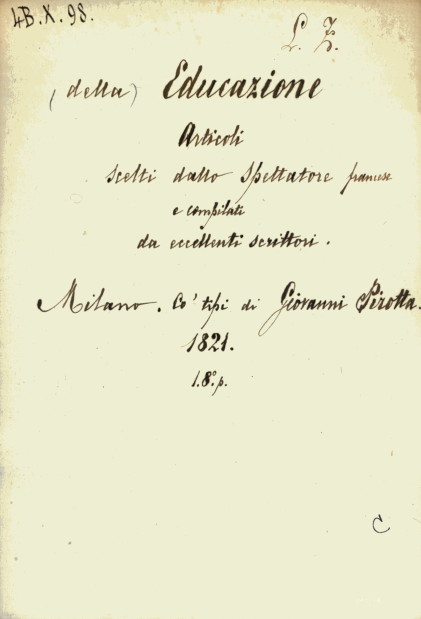 4B.X.98.
L. Z.
(della) Educazione
Articoli
scelti dallo Spettatore francese
e compilati
da eccellenti scrittori.
Milano. Co' tipi di Giovanni Pirotta.
1821.
1.8.° p.
C